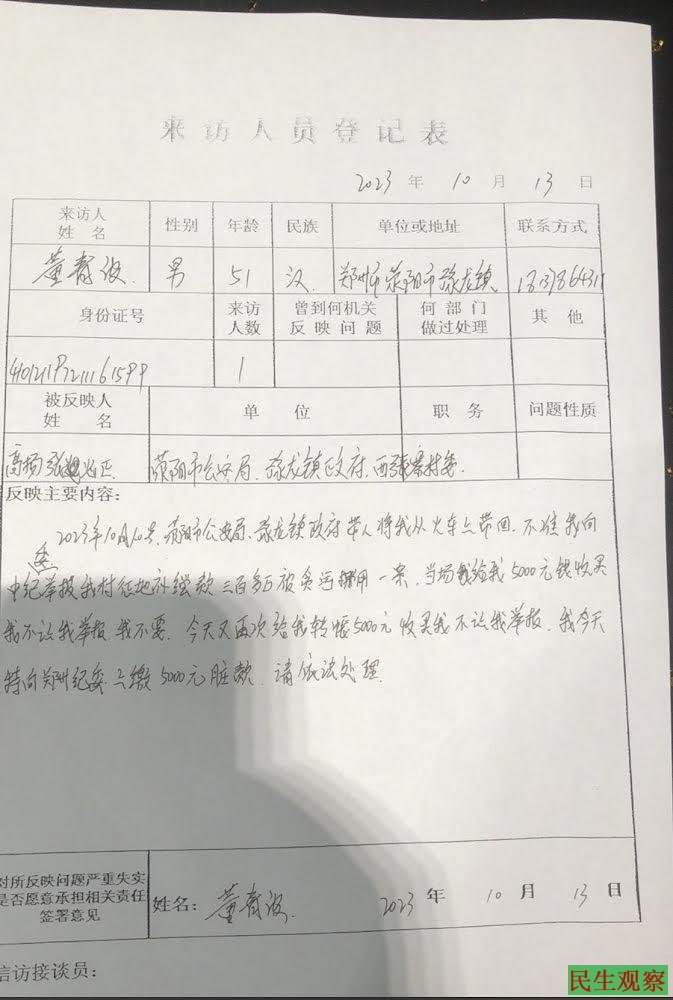 来访人员登记表
2023 年 10 月 13 日
来访人 姓名 性别 年龄 民族 单位或地址 联系方式
董青波 男 51 汉 郑州市荥阳市豫龙镇
身份证号 来访人数 曾到何机关反映问题 何部门做过处理 其他
1
被反映人 姓名 单位 职务 问题性质
荥阳市公安局、豫龙镇政府、西张寨村委
反映主要内容:
2023年10月10号,荥阳市公安局、豫龙镇政府带人将我从火车上带回,不准我向
中纪委举报我村征地补偿款三百多万被贪污挪用一案,当场给我5000元钱收买
我不让我举报,我不要,今天又再次给我转账5000元收买我不让我举报,我今天
特向郑州纪委上缴5000元脏款,请依法处理.
对所反映问题严重失实
是否愿意承担相关责任
签署意见
姓名: 董青波 2023 年 10 月 13 日
信访接谈员:
民生观察